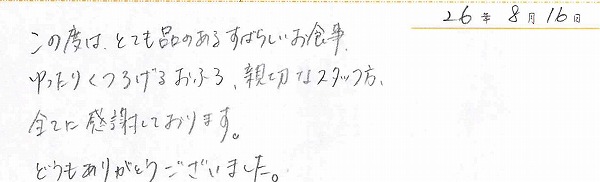 26年 8月 16日
この度は、とても品のあるすばらしいお食事、
ゆったりくつろげるおふろ、親切なスタッフ方、
全てに感謝しております。
どうもありがとうございました。